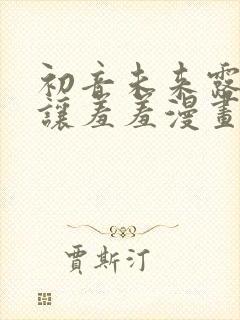 初音未来露
讓羞羞漫畫
賈斯汀